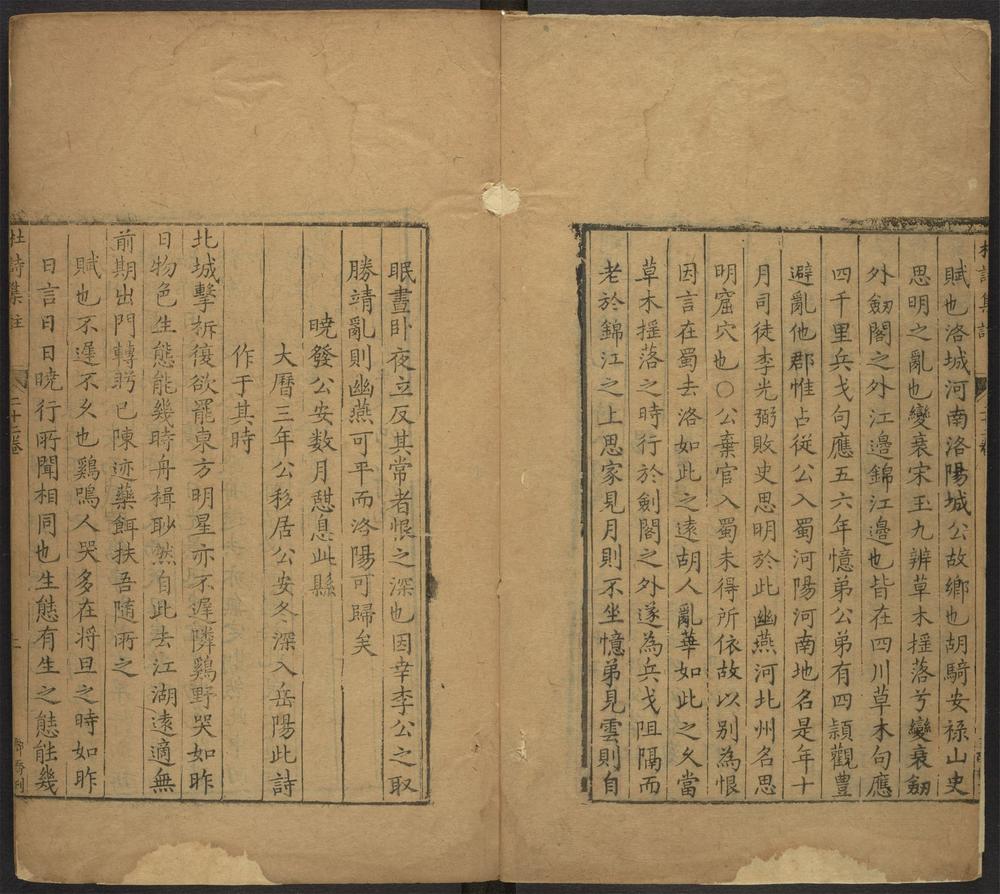 賦也洛城河南洛陽城公故鄉也胡騎安祿山史
思明之亂也變衰宋玉九辨草木揺落兮變衰劔
外劔閣之外江邊錦江邊也皆在四川草木句應
四千里兵戈句應五六年憶弟公弟有四頴觀豊
避亂他郡惟占從公入蜀河陽河南地名是年十
月司徒李光弼敗史思明於此幽燕河北州名思
明窟穴也○公棄官入蜀未得所依故以别為恨
因言在蜀去洛如此之遠胡人亂華如此之久當
草木揺落之時行於劍閣之外遂為兵戈阻隔而
老於錦江之上思家見月則不坐憶弟見雲則自
眠晝卧夜立反其常者恨之深也因幸李公之取
勝靖亂則幽燕可平而洛陽可歸矣
曉發公安数月憇息此縣
大曆三年公移居公安冬深入岳陽此詩
作于其時
北城擊柝復欲罷東方明星亦不遲隣鷄野哭如昨
日物色生態能幾時舟楫眇然自此去江湖遠適無
前期出門轉眄已陳迹藥餌扶吾随所之
賦也不遲不久也鷄鳴人哭多在将旦之時如昨
日言日日曉行所聞相同也生態有生之態能幾
杜詩集註
二十二卷